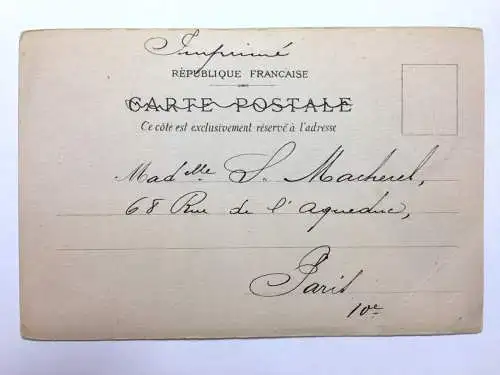 Imprimé
RÉPUBLIQUE FRANCAISE
CARTE POSTALE
Ce côté est exclusivement réservé à l'adresse
Madelle S. Macherel,
68 Rue de l'aqueduc,
Paris
10e